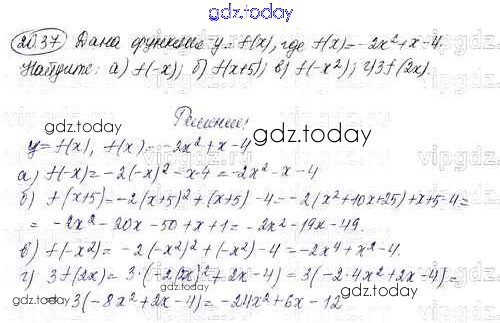 gdz.today
20.37 Дана функция y=f(x), где f(x)=-2x²+x-4.
Найдите: а) f(-x); б) f(x+5); в) f(-x²); г) 3f(2x).
gdz.today
Решение:
gdz.today
y=f(x), f(x)=-2x²+x-4
а) f(-x)=-2(-x)²-x-4=-2x²-x-4
б) f(x+5)=-2(x+5)²+(x+5)-4=-2(x²+10x+25)+x+5-4=
=-2x²-20x-50+x+1=-2x²-19x-49.
в) f(-x²)=-2(-x²)²+(-x²)-4=-2x⁴+x²-4.
г) 3f(2x)=3·(-2(2x)²+2x-4)=3(-2·4x²+2x-4)=
=3(-8x²+2x-4)=-24x²+6x-12
gdz.today
gdz.today